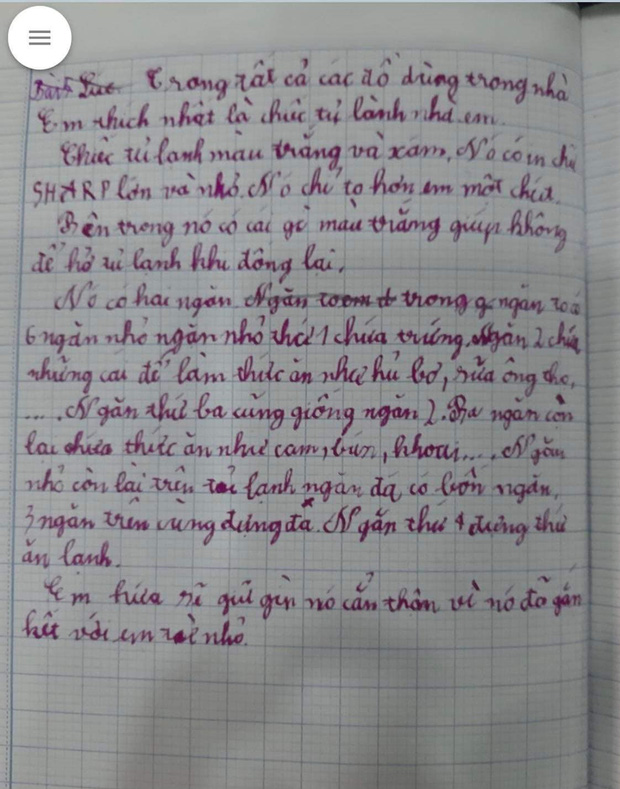 Trong tất cả các đồ dùng trong nhà
Em thích nhật là chiếc tủ lành nhà em.
Chiếc tủ lanh màu trắng và xám. Nó có in chữ
SHARP lớn và nhỏ. Nó chỉ to hơn em một chút.
Bên trong nó có cái gờ màu trắng giúp không
để hở tủ lạnh khi đông lại.
Nó có hai ngăn trong ngăn
6 ngăn nhỏ ngăn nhỏ thứ 1 chứa trứng. Ngăn 2 chứa
những cái để làm thức ăn như hủ bơ, sữa ông thọ,
.... Ngăn thứ ba cũng giống ngăn 2. Ba ngăn còn
lại chứa thức ăn như cam, bún, khoai.... Ngăn
nhỏ còn lại trên lạnh ngăn đá có bốn ngăn,
3 ngăn trên cùng đựng đá. Ngăn thứ 4 đựng thứ
ăn lanh.
Em hứa sẽ gũi gìn nó cẩn thận vì nó đã gắn
kết với em nhỏ.